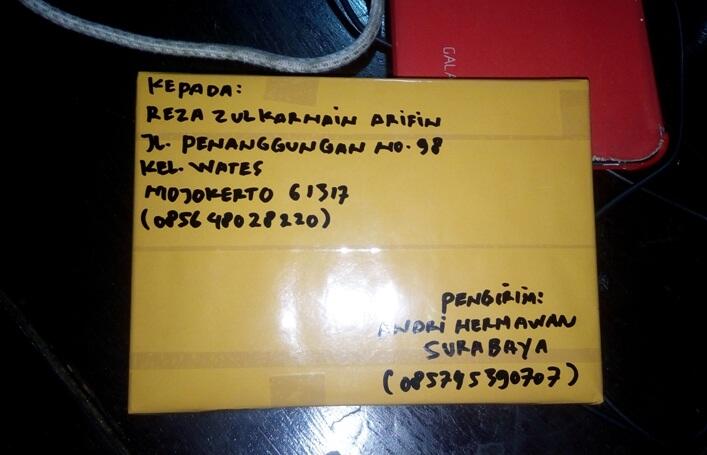 GALA
KEPADA:
REZA ZULKARNAIN ARIFIN
JL. PENANGGUNGAN NO. 98
KEL. WATES
MOJOKERTO 61317
(085648028220)
PENGIRIM:
ANDRI HERMAWAN
SURABAYA
(085745390707)